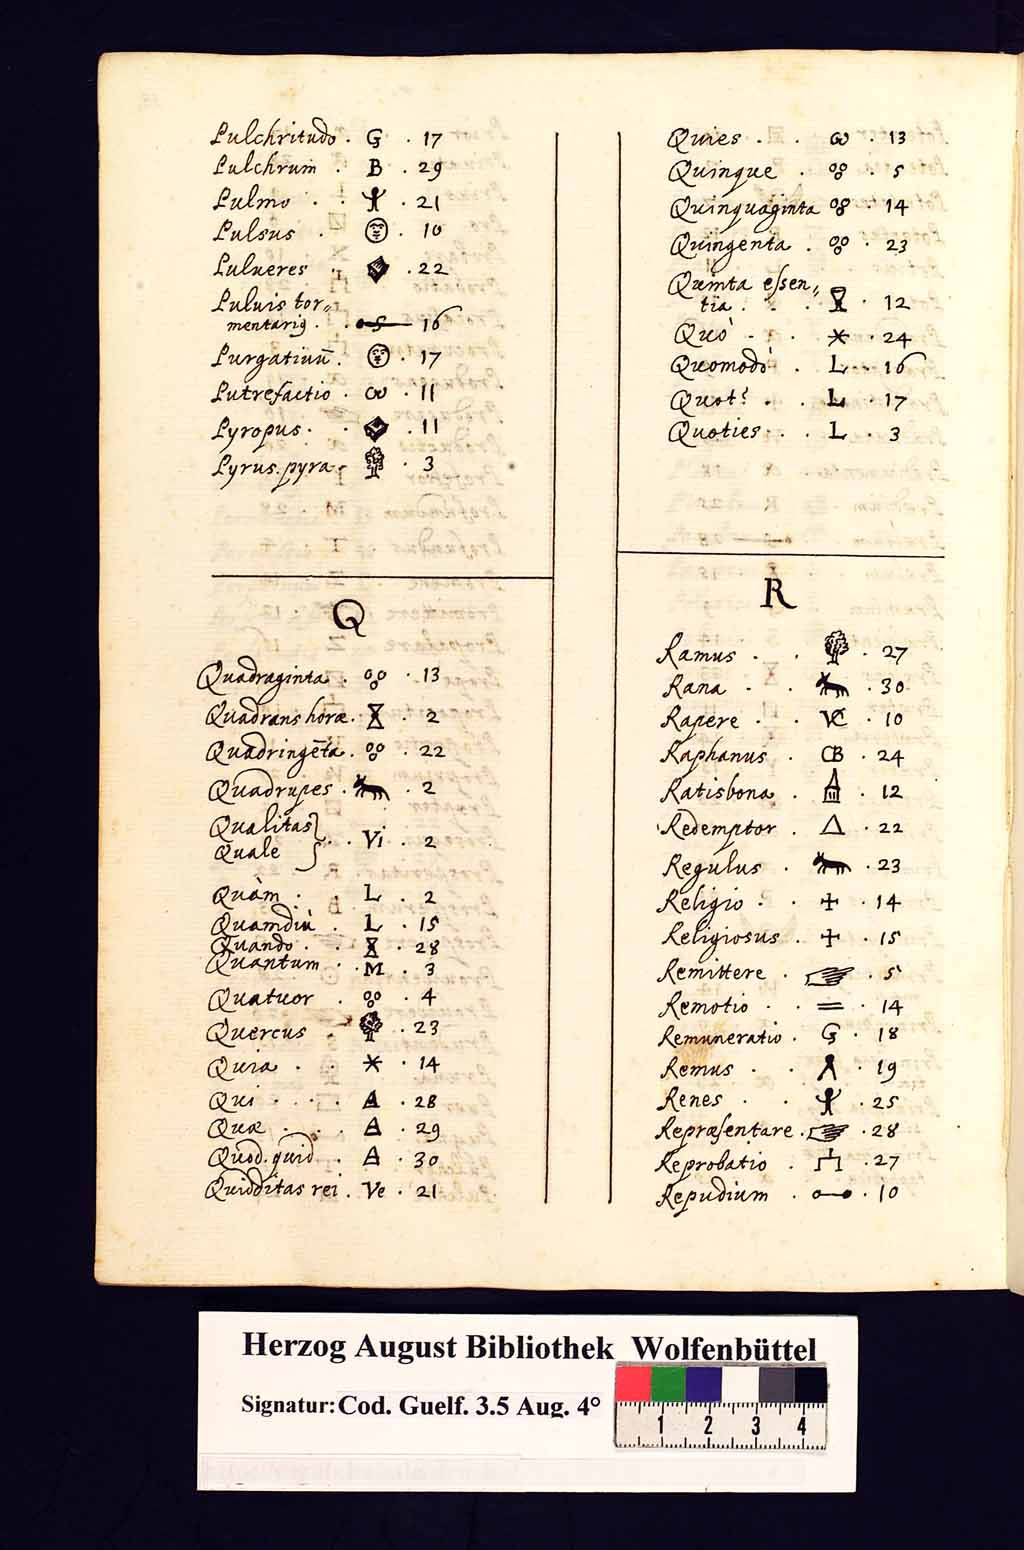 Pulchritudo . G . 17
Pulchrum . B . 29
Pulmo . . . 21
Pulsus . . 10
Pulueres . . 22
Puluis tor⸗
mentariꝰ . . 16
Purgatiuū . . 17
Putrefactio . ω . 11
Pyropus . . . 11
Pyrus. pyra . . 3
Q
Quadraginta . . 13
Quadrans horæ . . 2
Quadringēta . . 22
Quadrupes . . 2
Qualitas
Quale } . Vi . 2
Quàm . L . 2
Quamdiù . L . 15
Quando . . . 28
Quantum . . M . 3
Quatuor . . 4
Quercus . . 23
Quia . . * . 14
Qui . . . A . 28
Quæ . . . A . 29
Quod. quid . A . 30
Quidditas rei . Ve . 21
Quies . . ω . 13
Quinque . . . 5
Quinquaginta . 14
Quingenta . . 23
Quinta essen⸗
tia . . . 12
Quò . . * . 24
Quomodò . L . . 16
Quot? . . L . 17
Quoties . . L . 3
R
Ramus . . . 27
Rana . . . 30
Rapere . . VC . 10
Raphanus . CB . 24
Ratisbona . . 12
Redemptor . △ . 22
Regulus . . 23
Religio . . + . 14
Religiosus . + . 15
Remittere . . 5
Remotio . . = . 14
Remuneratio . G . 18
Remus . . . 19
Renes . . . 25
Repræsentare . . 28
Reprobatio . . 27
Repudium . . 10
Herzog August Bibliothek Wolfenbüttel
Signatur: Cod. Guelf. 3.5 Aug. 4°
1 2 3 4